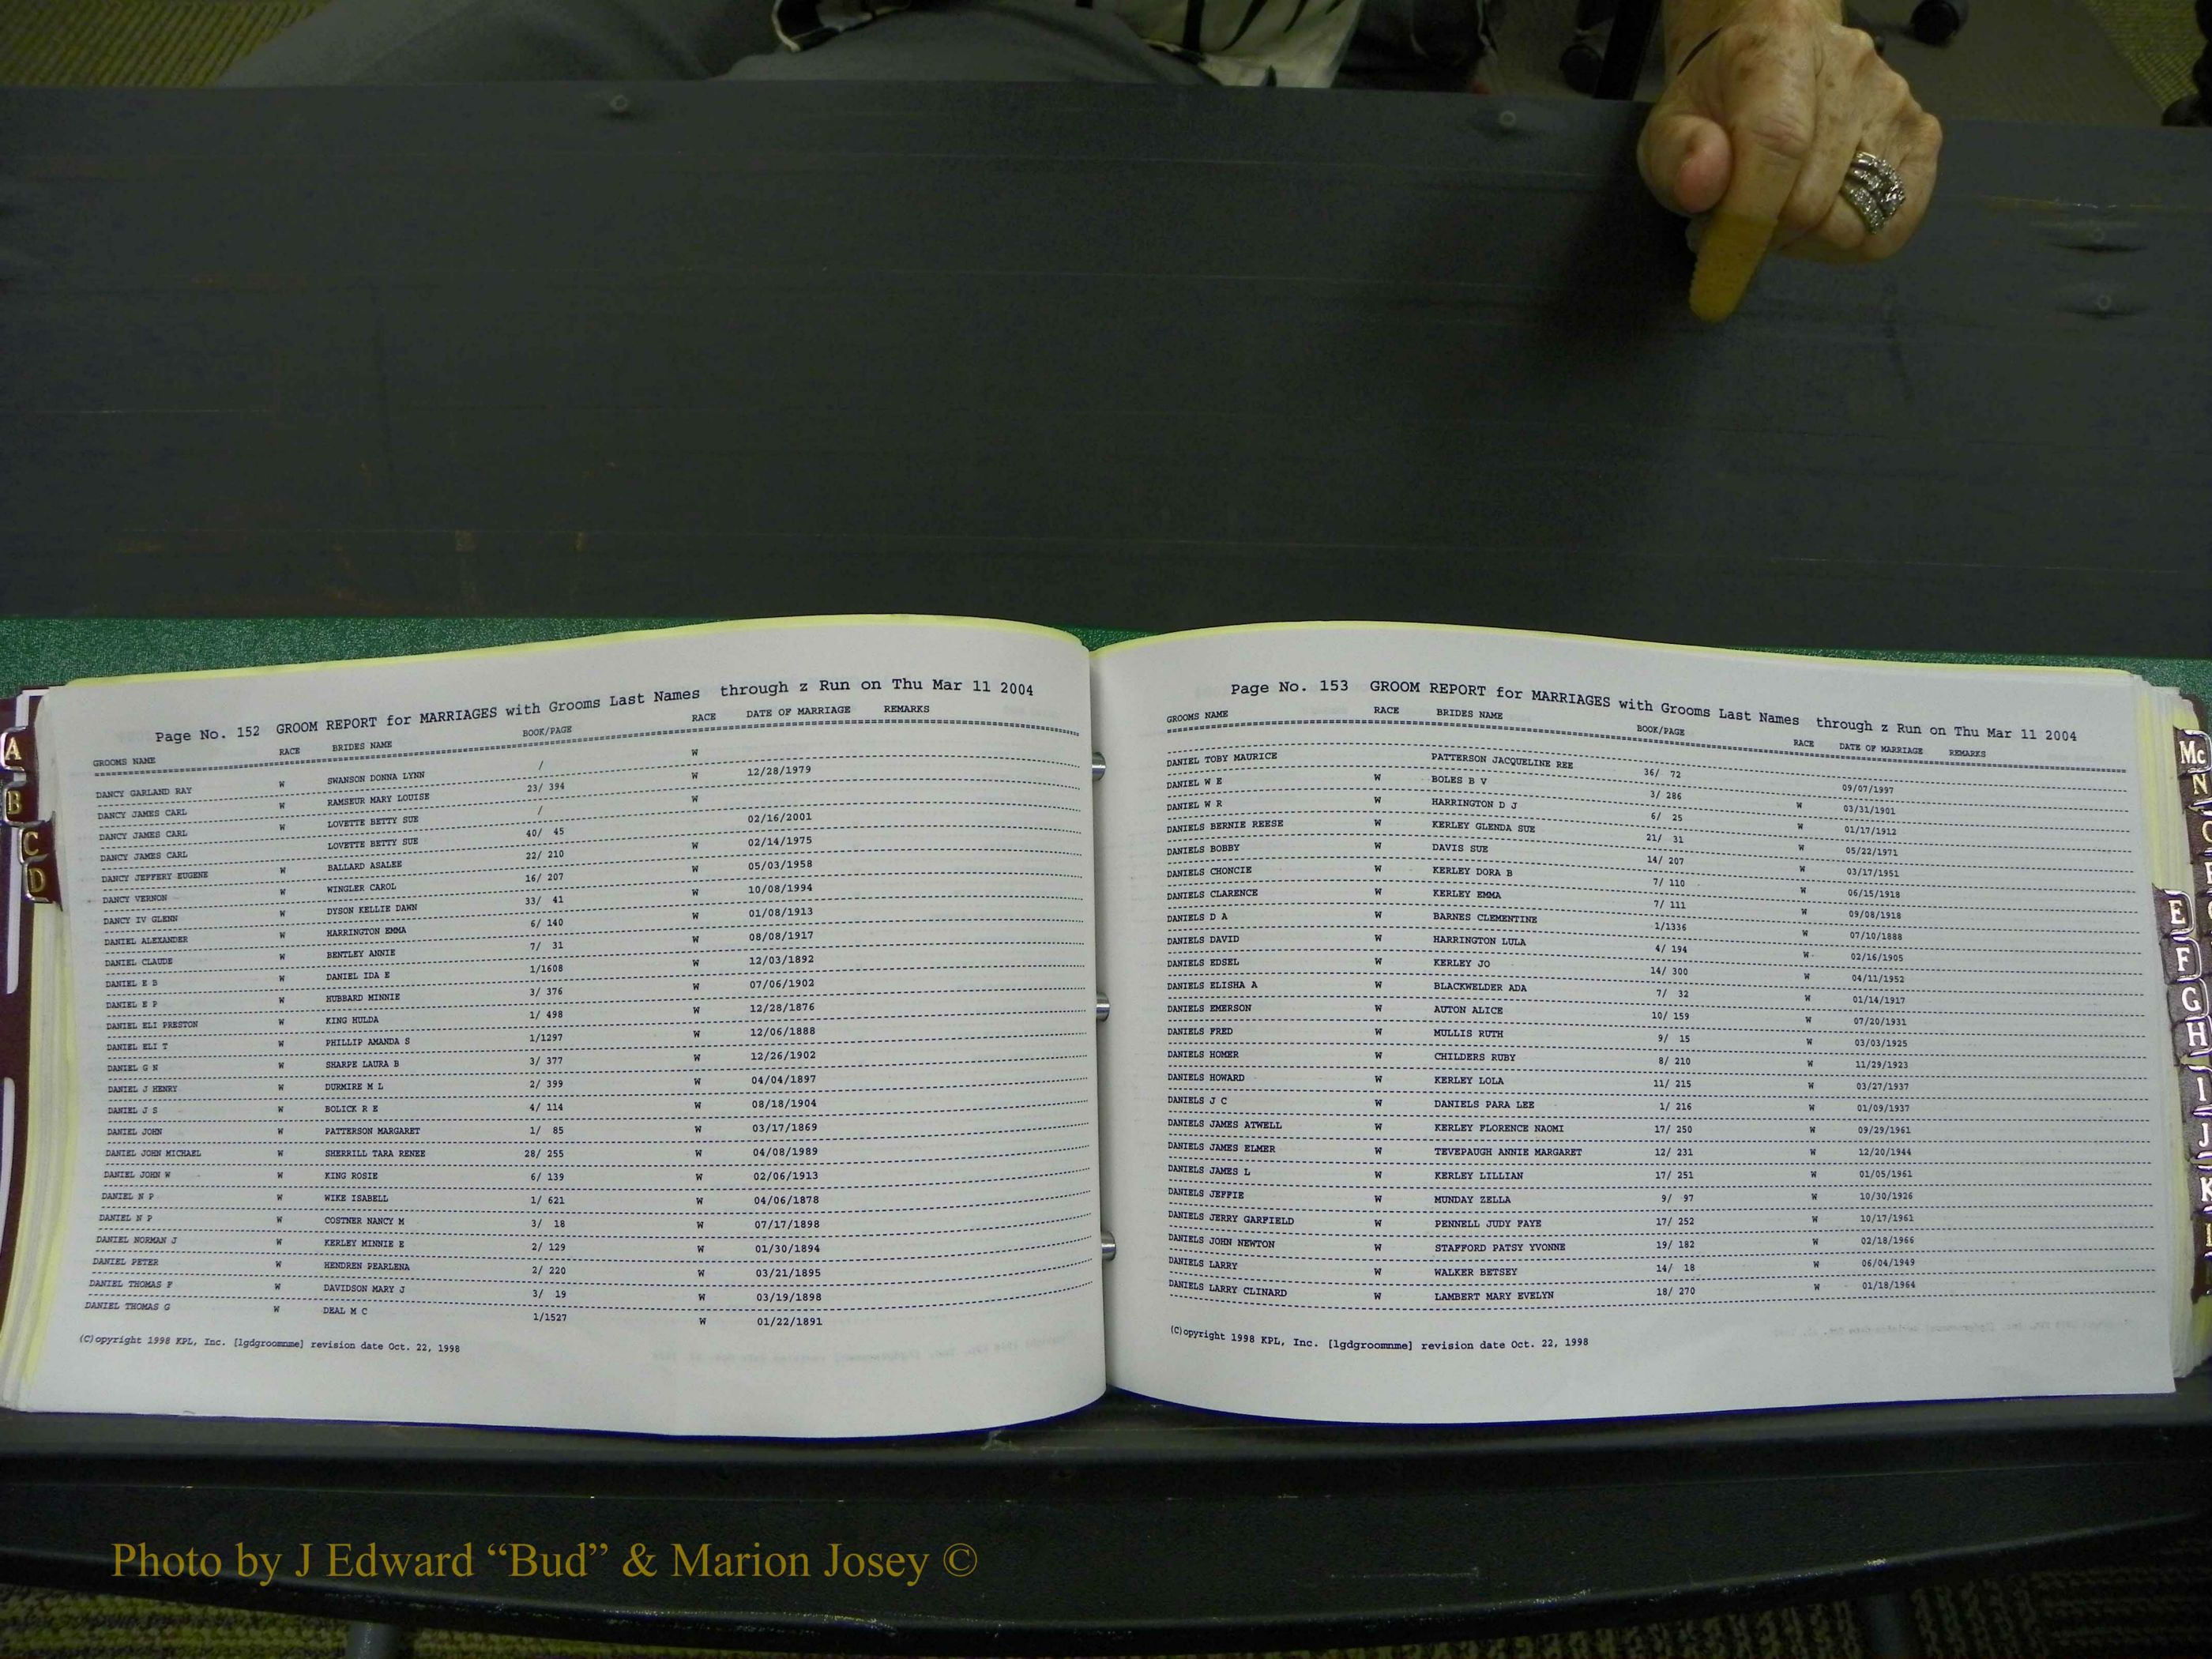 Page No. 152 GROOM REPORT for MARRIAGES with Grooms Last Names through z Run on Thu Mar 11 2004
GROOMS NAME RACE BRIDES NAME BOOK/PAGE RACE DATE OF MARRIAGE REMARKS
DANCY GARLAND RAY W SWANSON DONNA LYNN / W
DANCY JAMES CARL W RAMSEUR MARY LOUISE 23/ 394 W 12/28/1979
DANCY JAMES CARL W LOVETTE BETTY SUE / W
DANCY JAMES CARL LOVETTE BETTY SUE 40/ 45 02/16/2001
DANCY JEFFERY EUGENE W BALLARD ASALEE 22/ 210 W 02/14/1975
DANCY VERNON W WINGLER CAROL 16/ 207 W 05/03/1958
DANCY IV GLENN W DYSON KELLIE DAWN 33/ 41 W 10/08/1994
DANIEL ALEXANDER W HARRINGTON EMMA 6/ 140 W 01/08/1913
DANIEL CLAUDE W BENTLEY ANNIE 7/ 31 W 08/08/1917
DANIEL E B W DANIEL IDA E 1/1608 W 12/03/1892
DANIEL E P W HUBBARD MINNIE 3/ 376 W 07/06/1902
DANIEL ELI PRESTON W KING HULDA 1/ 498 W 12/28/1876
DANIEL ELI T W PHILLIP AMANDA S 1/1297 W 12/06/1888
DANIEL G N W SHARPE LAURA B 3/ 377 W 12/26/1902
DANIEL J HENRY W DURMIRE M L 2/ 399 W 04/04/1897
DANIEL J S W BOLICK R E 4/ 114 W 08/18/1904
DANIEL JOHN W PATTERSON MARGARET 1/ 85 W 03/17/1869
DANIEL JOHN MICHAEL W SHERRILL TARA RENEE 28/ 255 W 04/08/1989
DANIEL JOHN W W KING ROSIE 6/ 139 W 02/06/1913
DANIEL N P W WIKE ISABELL 1/ 621 W 04/06/1878
DANIEL N P W COSTNER NANCY M 3/ 18 W 07/17/1898
DANIEL NORMAN J W KERLEY MINNIE E 2/ 129 W 01/30/1894
DANIEL PETER W HENDREN PEARLENA 2/ 220 W 03/21/1895
DANIEL THOMAS F W DAVIDSON MARY J 3/ 19 W 03/19/1898
DANIEL THOMAS G W DEAL M C 1/1527 W 01/22/1891
(C)opyright 1998 KPL, Inc. [lgdgroomnme] revision date Oct. 22, 1998
A
B
C
D
Page No. 153 GROOM REPORT for MARRIAGES with Grooms Last Names through z Run on Thu Mar 11 2004
GROOMS NAME RACE BRIDES NAME BOOK/PAGE RACE DATE OF MARRIAGE REMARKS
DANIEL TOBY MAURICE PATTERSON JACQUELINE REE 36/ 72 09/07/1997
DANIEL W E W BOLES B V 3/ 286 W 03/31/1901
DANIEL W R W HARRINGTON D J 6/ 25 W 01/17/1912
DANIELS BERNIE REESE W KERLEY GLENDA SUE 21/ 31 W 05/22/1971
DANIELS BOBBY W DAVIS SUE 14/ 207 W 03/17/1951
DANIELS CHONCIE W KERLEY DORA B 7/ 110 W 06/15/1918
DANIELS CLARENCE W KERLEY EMMA 7/ 111 W 09/08/1918
DANIELS D A W BARNES CLEMENTINE 1/1336 W 07/10/1888
DANIELS DAVID W HARRINGTON LULA 4/ 194 W 02/16/1905
DANIELS EDSEL W KERLEY JO 14/ 300 W 04/11/1952
DANIELS ELISHA A W BLACKWELDER ADA 7/ 32 W 01/14/1917
DANIELS EMERSON W AUTON ALICE 10/ 159 W 07/20/1931
DANIELS FRED W MULLIS RUTH 9/ 15 W 03/03/1925
DANIELS HOMER W CHILDERS RUBY 8/ 210 W 11/29/1923
DANIELS HOWARD W KERLEY LOLA 11/ 215 W 03/27/1937
DANIELS J C W DANIELS PARA LEE 1/ 216 W 01/09/1937
DANIELS JAMES ATWELL W KERLEY FLORENCE NAOMI 17/ 250 W 09/29/1961
DANIELS JAMES ELMER W TEVEPAUGH ANNIE MARGARET 12/ 231 W 12/20/1944
DANIELS JAMES L W KERLEY LILLIAN 17/ 251 W 01/05/1961
DANIELS JEFFIE W MUNDAY ZELLA 9/ 97 W 10/30/1926
DANIELS JERRY GARFIELD W PENNELL JUDY FAYE 17/ 252 W 10/17/1961
DANIELS JOHN NEWTON W STAFFORD PATSY YVONNE 19/ 182 W 02/18/1966
DANIELS LARRY W WALKER BETSEY 14/ 18 W 06/04/1949
DANIELS LARRY CLINARD W LAMBERT MARY EVELYN 18/ 270 W 01/18/1964
(C)opyright 1998 KPL, Inc. [lgdgroomnme] revision date Oct. 22, 1998
Mc
N
E
F
G
H
I
J
K
Photo by J Edward “Bud” & Marion Josey ©